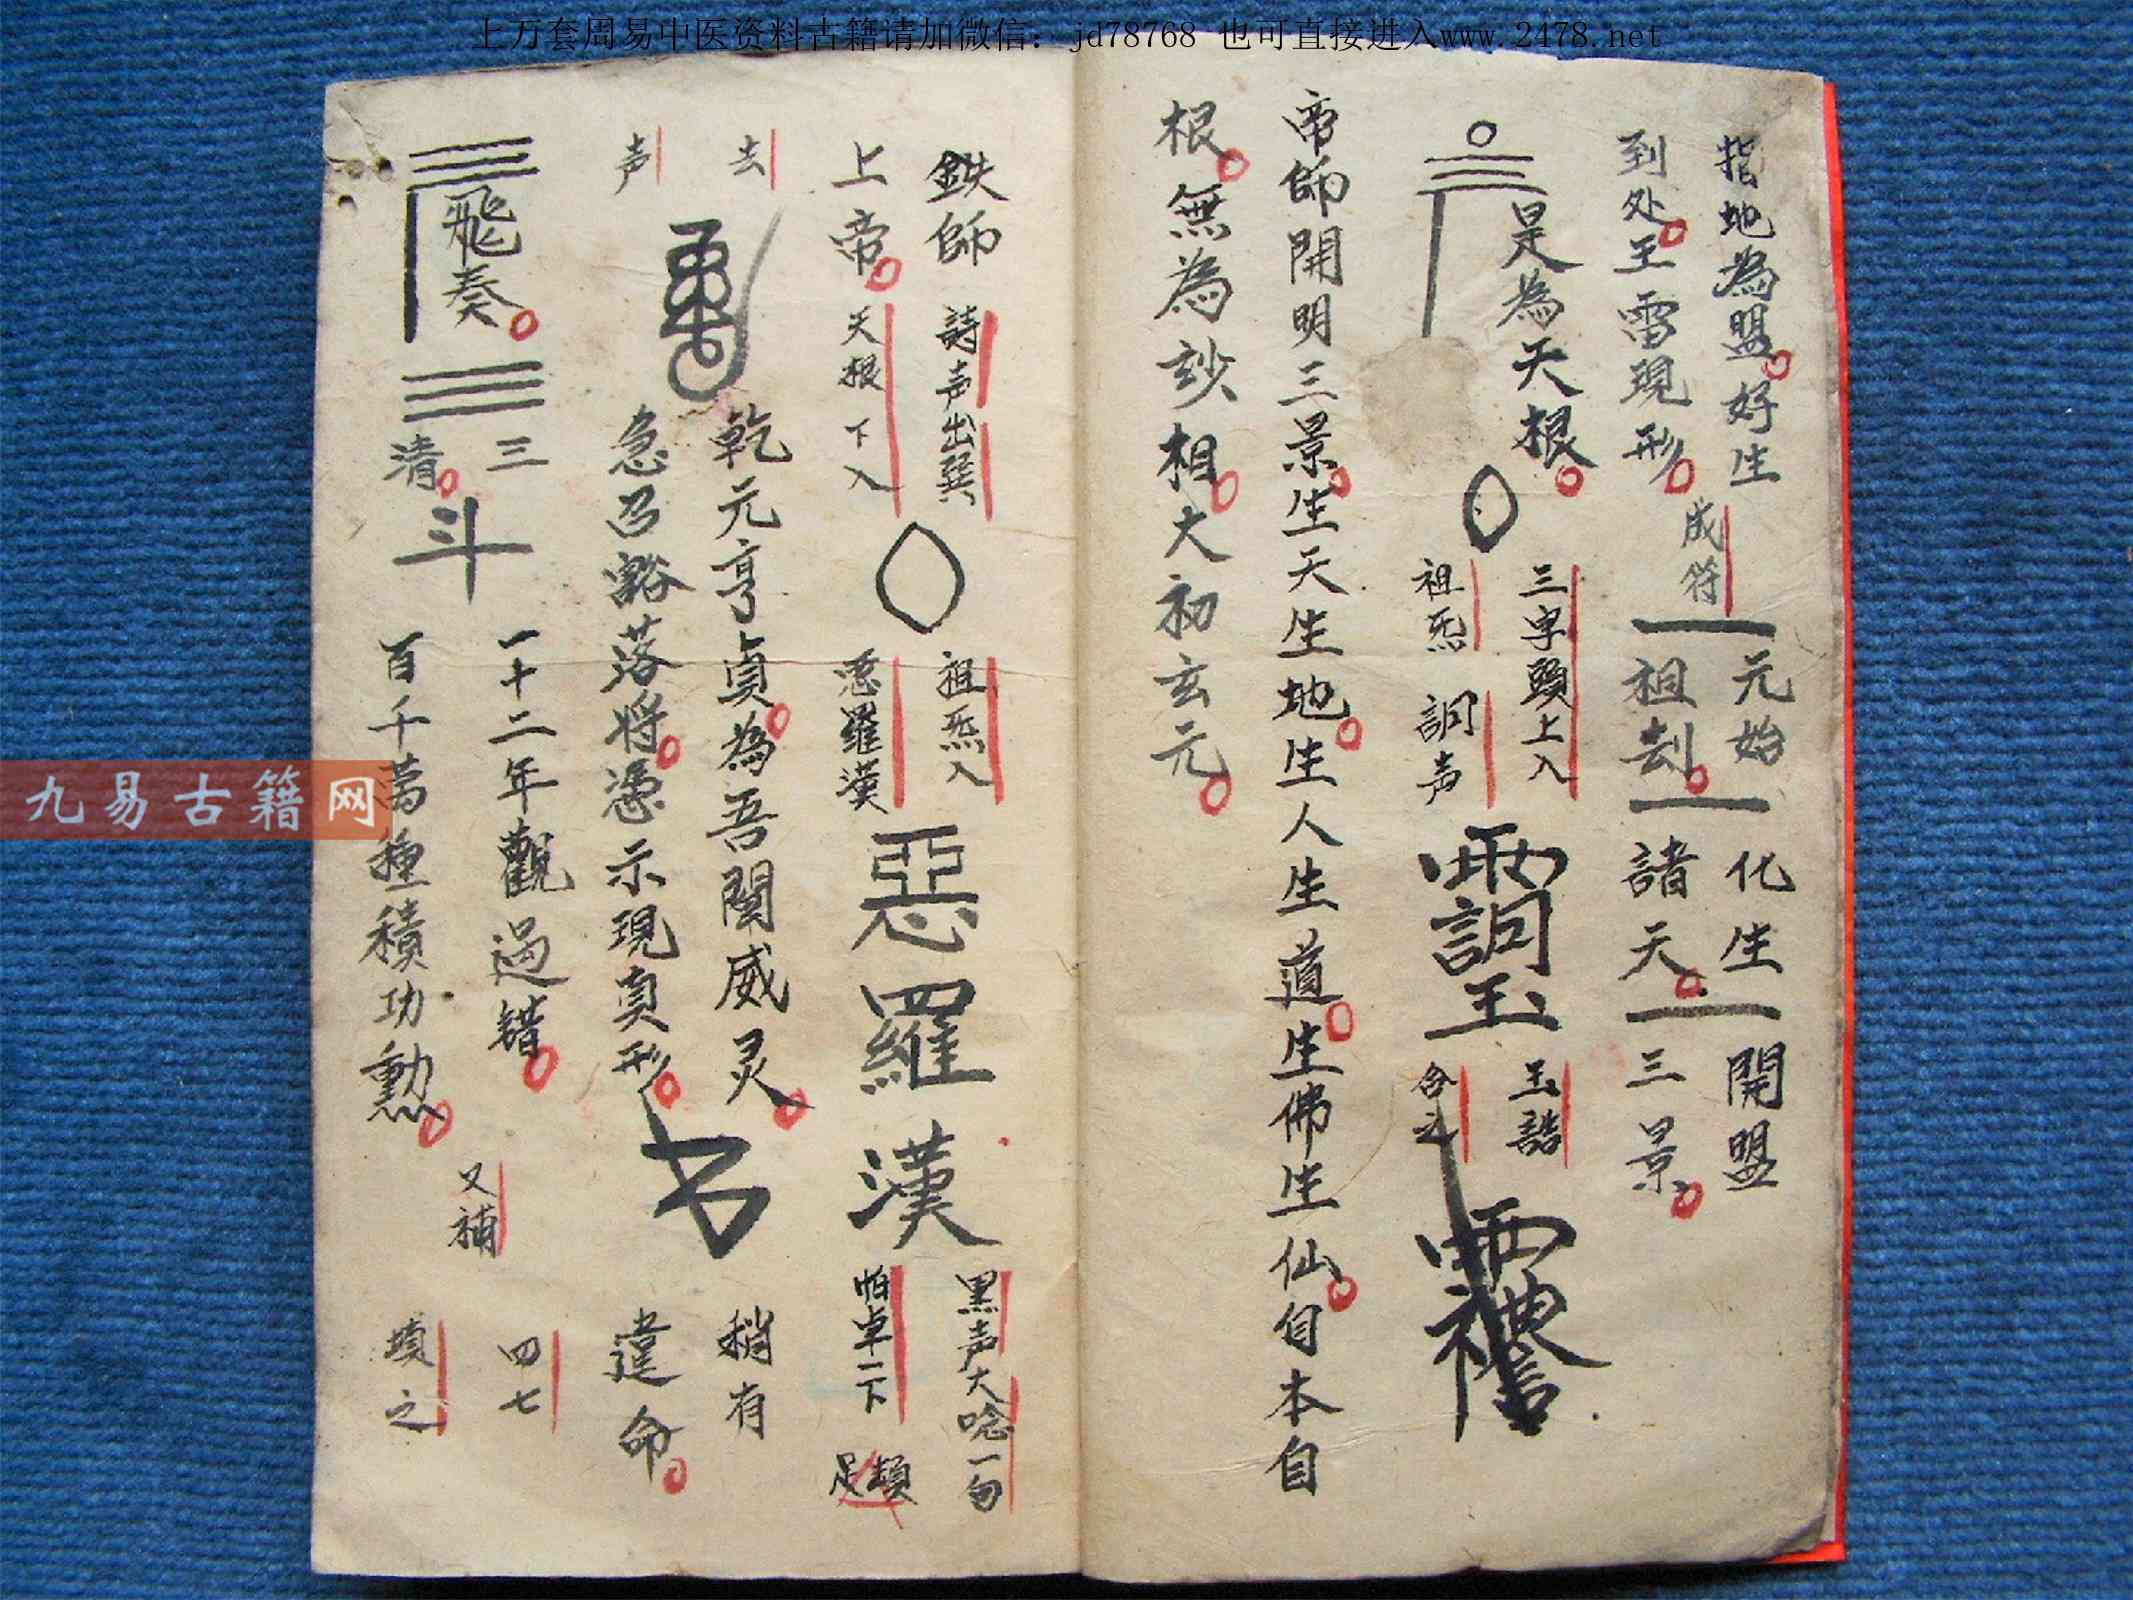 上万套周易中医资料古籍请加微信：jd78768 也可直接进入www.2478.net
九易古籍网
指地為盟好生
到处玉雷現形
成符
元始
祖刦
化生
諸天
開盟
三景
是為天根
三字頭上入
祖炁 詷声
玉詰
合之
帝師開明三景生天生地生人生道生佛生仙自本自
根無為玅相大初玄元
鉄師
上帝
詩声出巽
天根下入
祖炁入
惡羅漢
惡羅漢
黒声大唸一句
怕卓一下
頓足
去
声
乾元亨貞為吾關威灵
急召豁落將憑示現真形
稍有
違命
飛奏
三
清
斗
一十二年觀過錯
百千萬種積功勲
又補
四七
填之